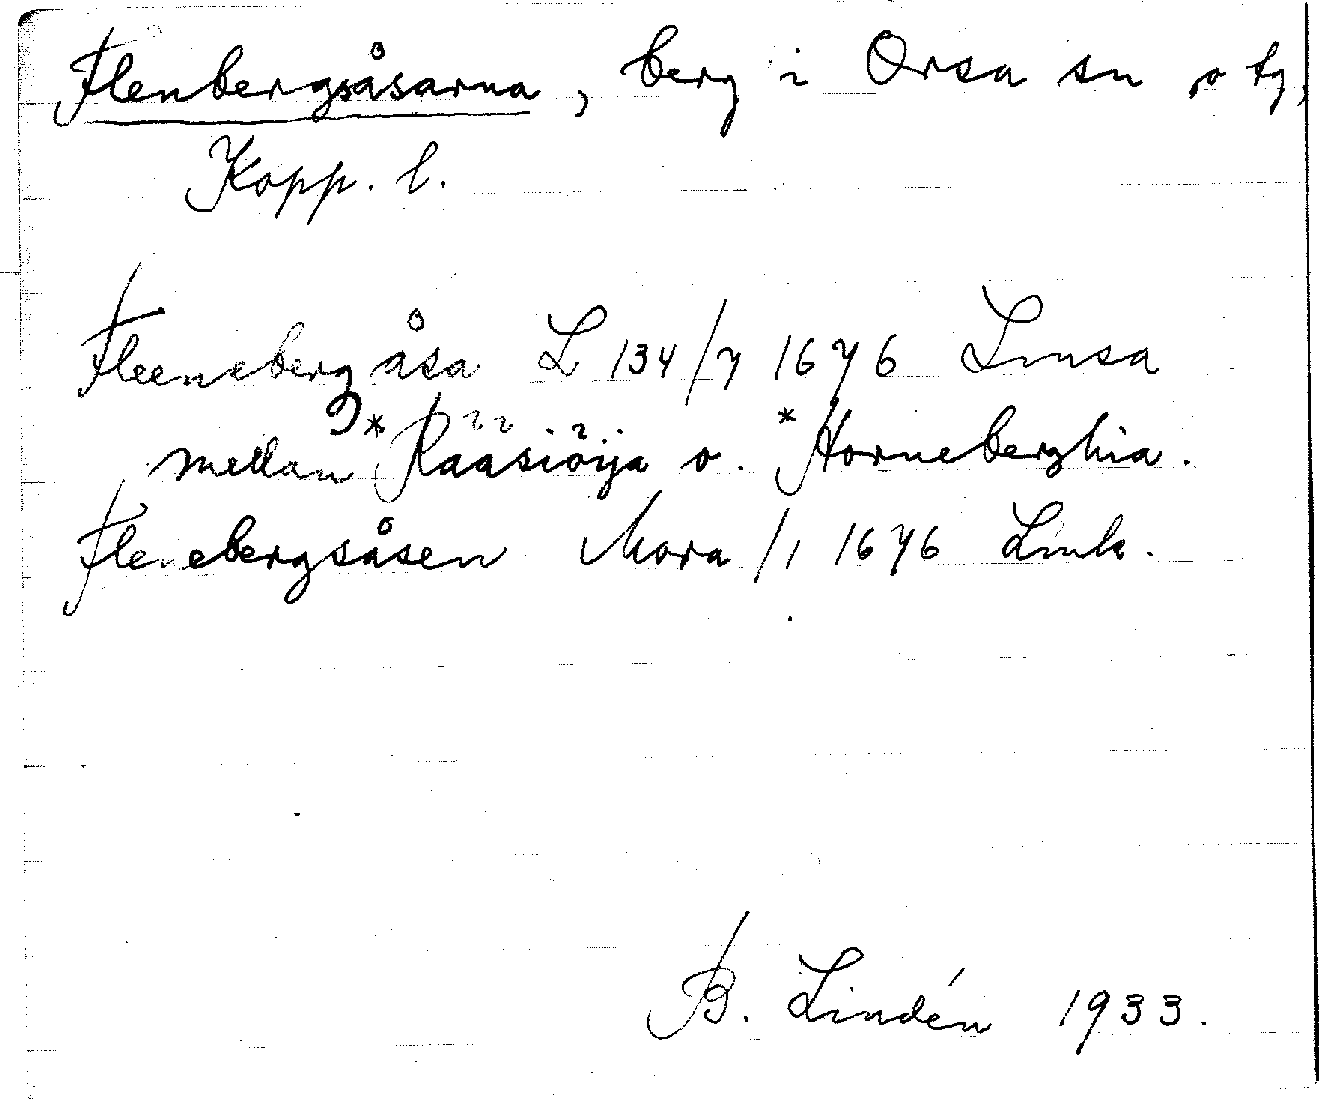 Flenbergsåsarna, berg i Orsa sn o tg,
Kopp. l.
Fleeneberg åsa L 134/7 1676 Lmsa
mellan *Rääsiöija o. *Horneberghia.
Flenebergsåsen Mora /1 1676 Lmk.
B. Lindén 1933.